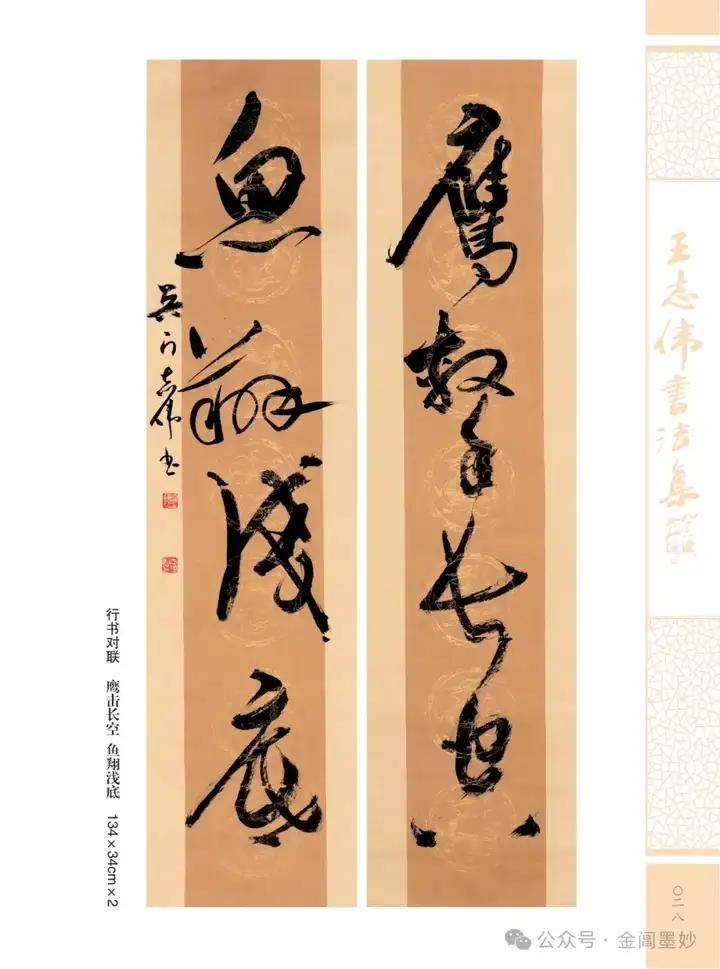 鷹擊長空
魚翔淺底
吴门志伟书
行书对联 鹰击长空 鱼翔浅底 134×34cm×2
王志伟書法集
〇二八
公众号·金阊墨妙